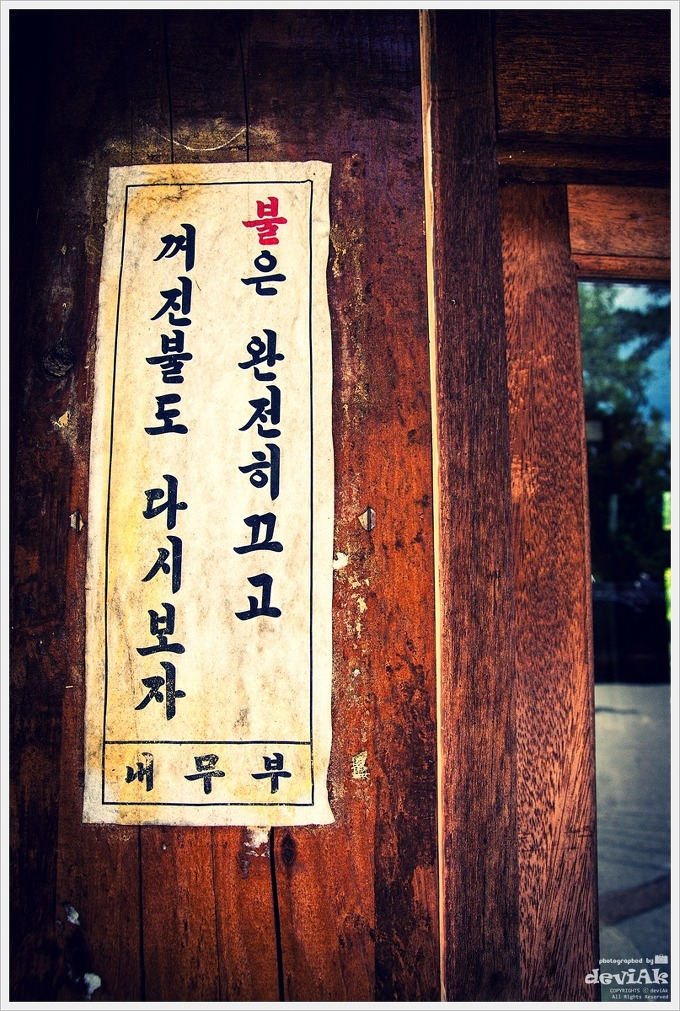 불은 완전히끄고
꺼진불도 다시보자
내무부
photographed by
deviAk
COPYRIGHTS ⓒ deviAk
All Rights Reserved